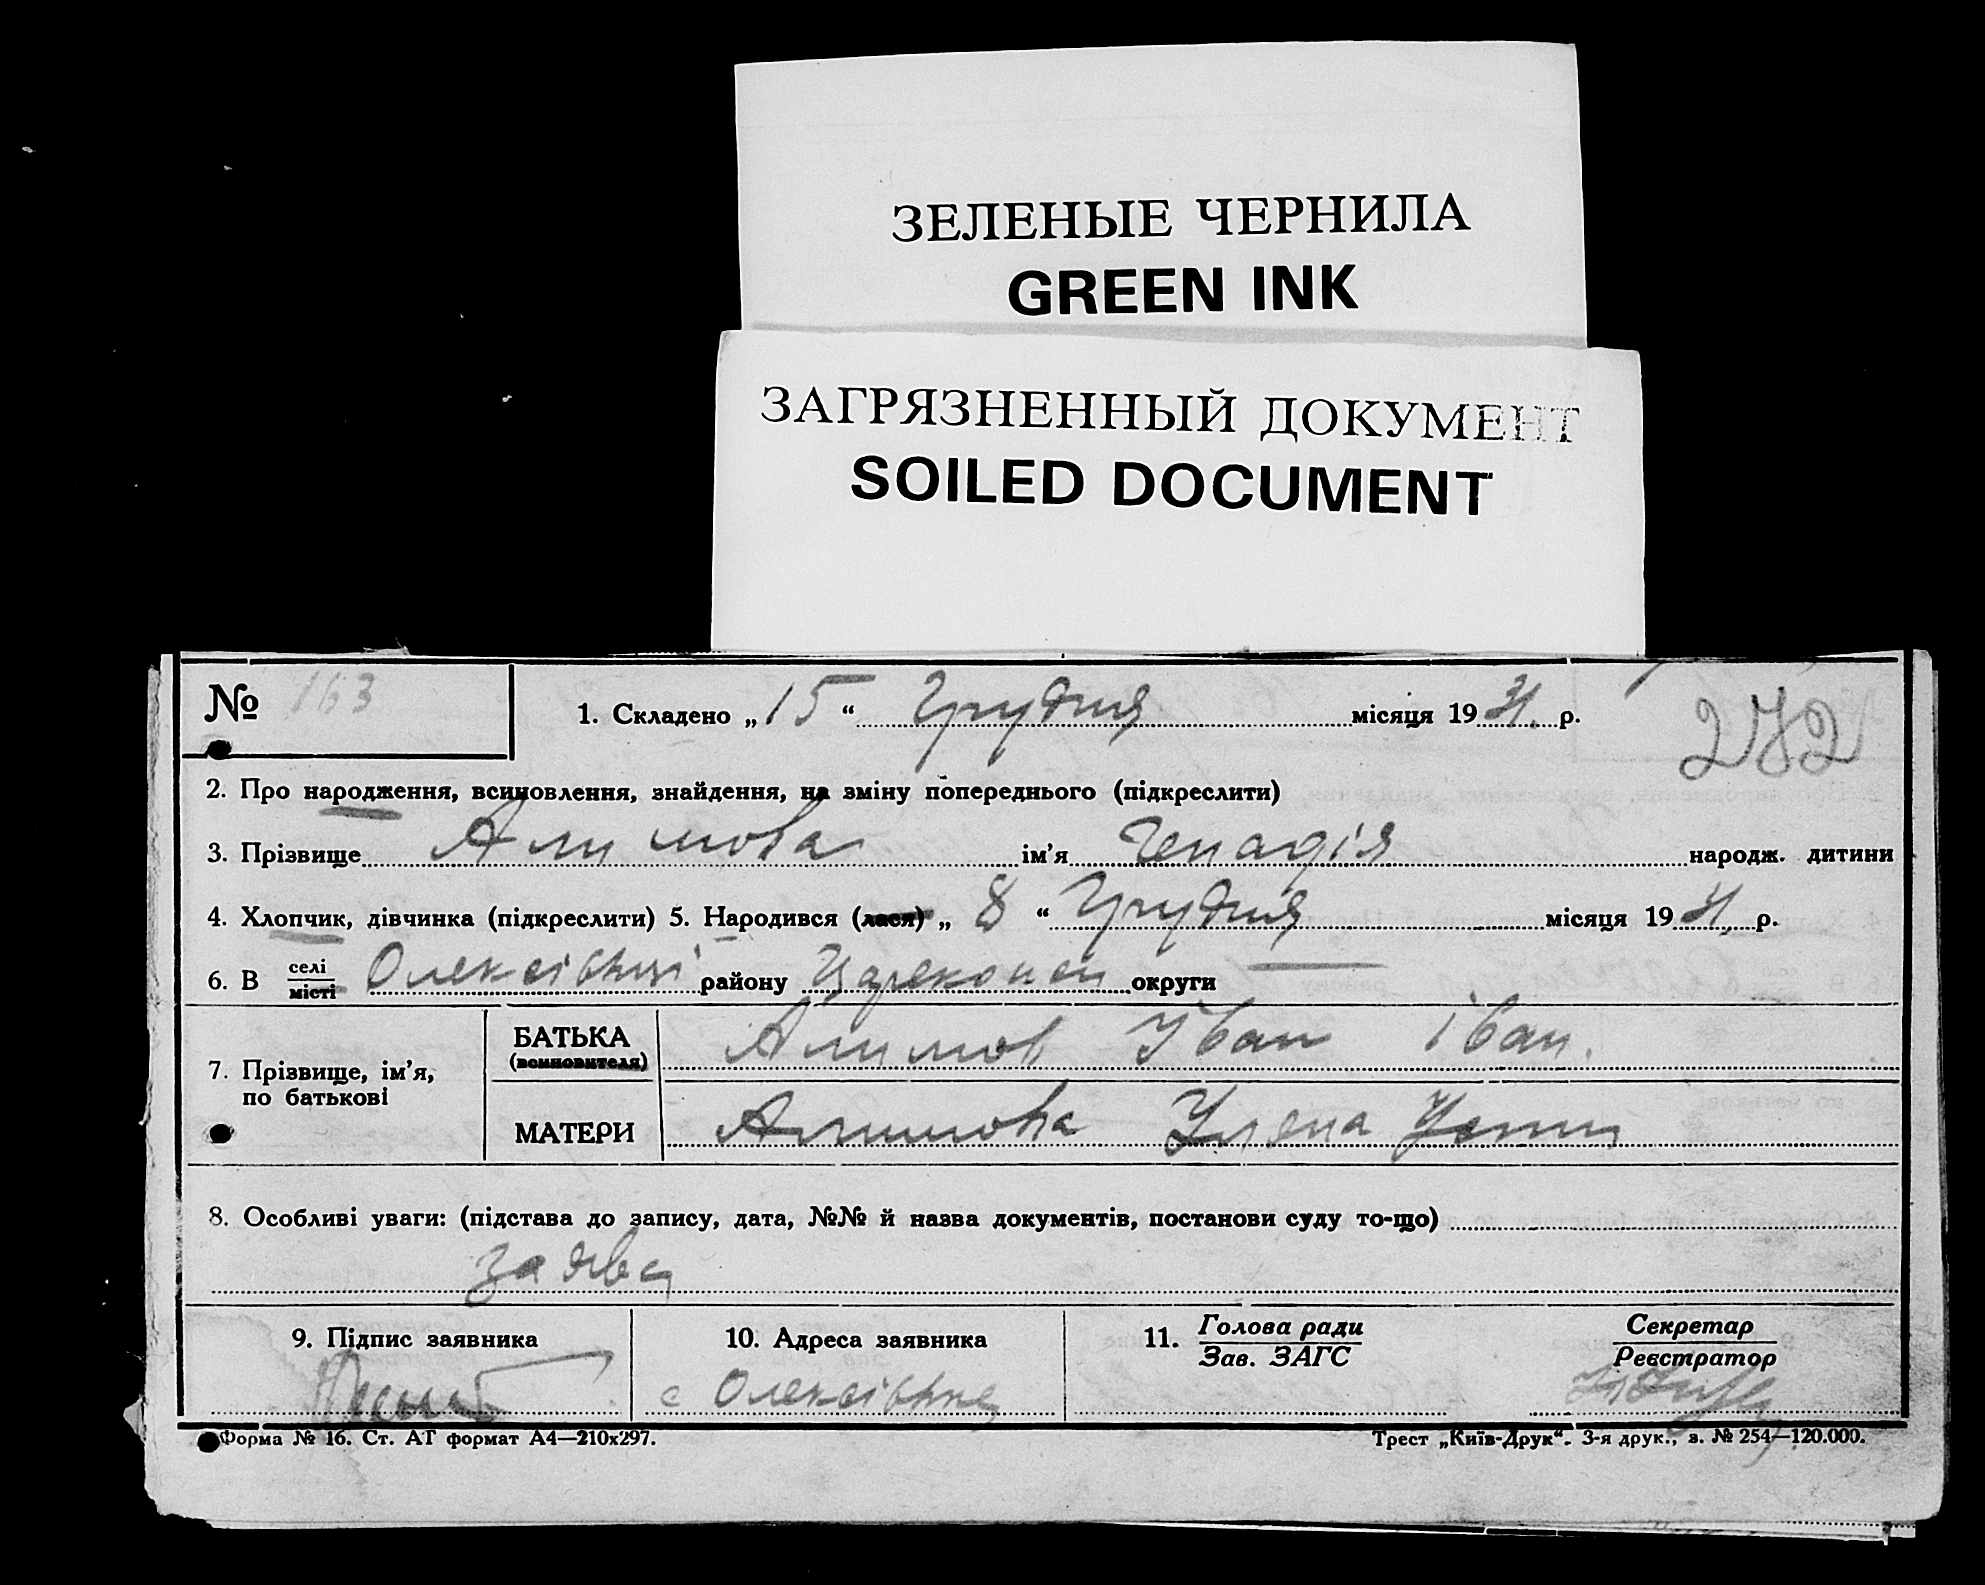 ЗЕЛЕНЫЕ ЧЕРНИЛА
GREEN INK
ЗАГРЯЗНЕННЫЙ ДОКУМЕНТ
SOILED DOCUMENT
№ 163
1. Складено „ 15 “ Грудня місяця 19 31. р.
282
2. Про народження, всиновлення, знайдення, на зміну попереднього (підкреслити)
3. Прізвище Алимова ім'я Генадія народж. дитини
4. Хлопчик, дівчинка (підкреслити) 5. Народився (лася) „ 8 “ Грудня місяця 19 31 р.
6. В селі/місті Олексівкці району округи
7. Прізвище, ім'я, по батькові
БАТЬКА (всиновителя) Алимов Іван Іван.
МАТЕРИ Алимова Уляна
8. Особливі уваги: (підстава до запису, дата, №№ й назва документів, постанови суду то-що)
заява
9. Підпис заявника
10. Адреса заявника
с Олексівка
11. Голова ради
Зав. ЗАГС
Секретар
Реєстратор
Форма № 16. Ст. АГ формат А4—210x297.
Трест „Київ-Друк“. 3-я друк., з. № 254—120.000.